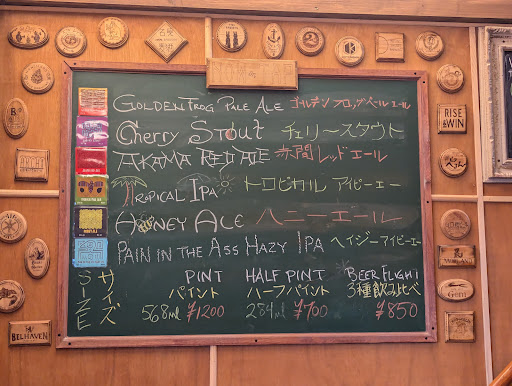 GOLDEN FROG PALE ALE ゴールデン フロッグペール エール
Cherry Stout チェリースタウト
AKAMA RED ALE 赤間レッド エール
TROPICAL IPA トロピカル アイピーエー
HONEY ALE ハニーエール
PAIN IN THE ASS HAZY IPA ヘイジーアイピーエー
SIZE サイズ
PINT HALF PINT BEER FLIGHT
パイント ハーフパイント 3種飲み比べ
568ml ¥1200 284ml ¥700 ¥850
RISE & WIN
BELHAVEN